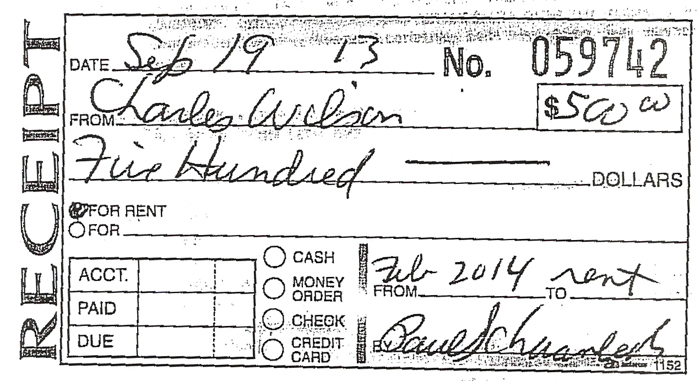 RECEIPT
DATE Sep 19 13 No. 059742
FROM Charles Wilson $500 00
Five Hundred DOLLARS
FOR RENT
FOR
ACCT.
PAID
DUE
CASH
MONEY ORDER
CHECK
CREDIT CARD
Feb 2014 rent
FROM TO
BY Paul
1152